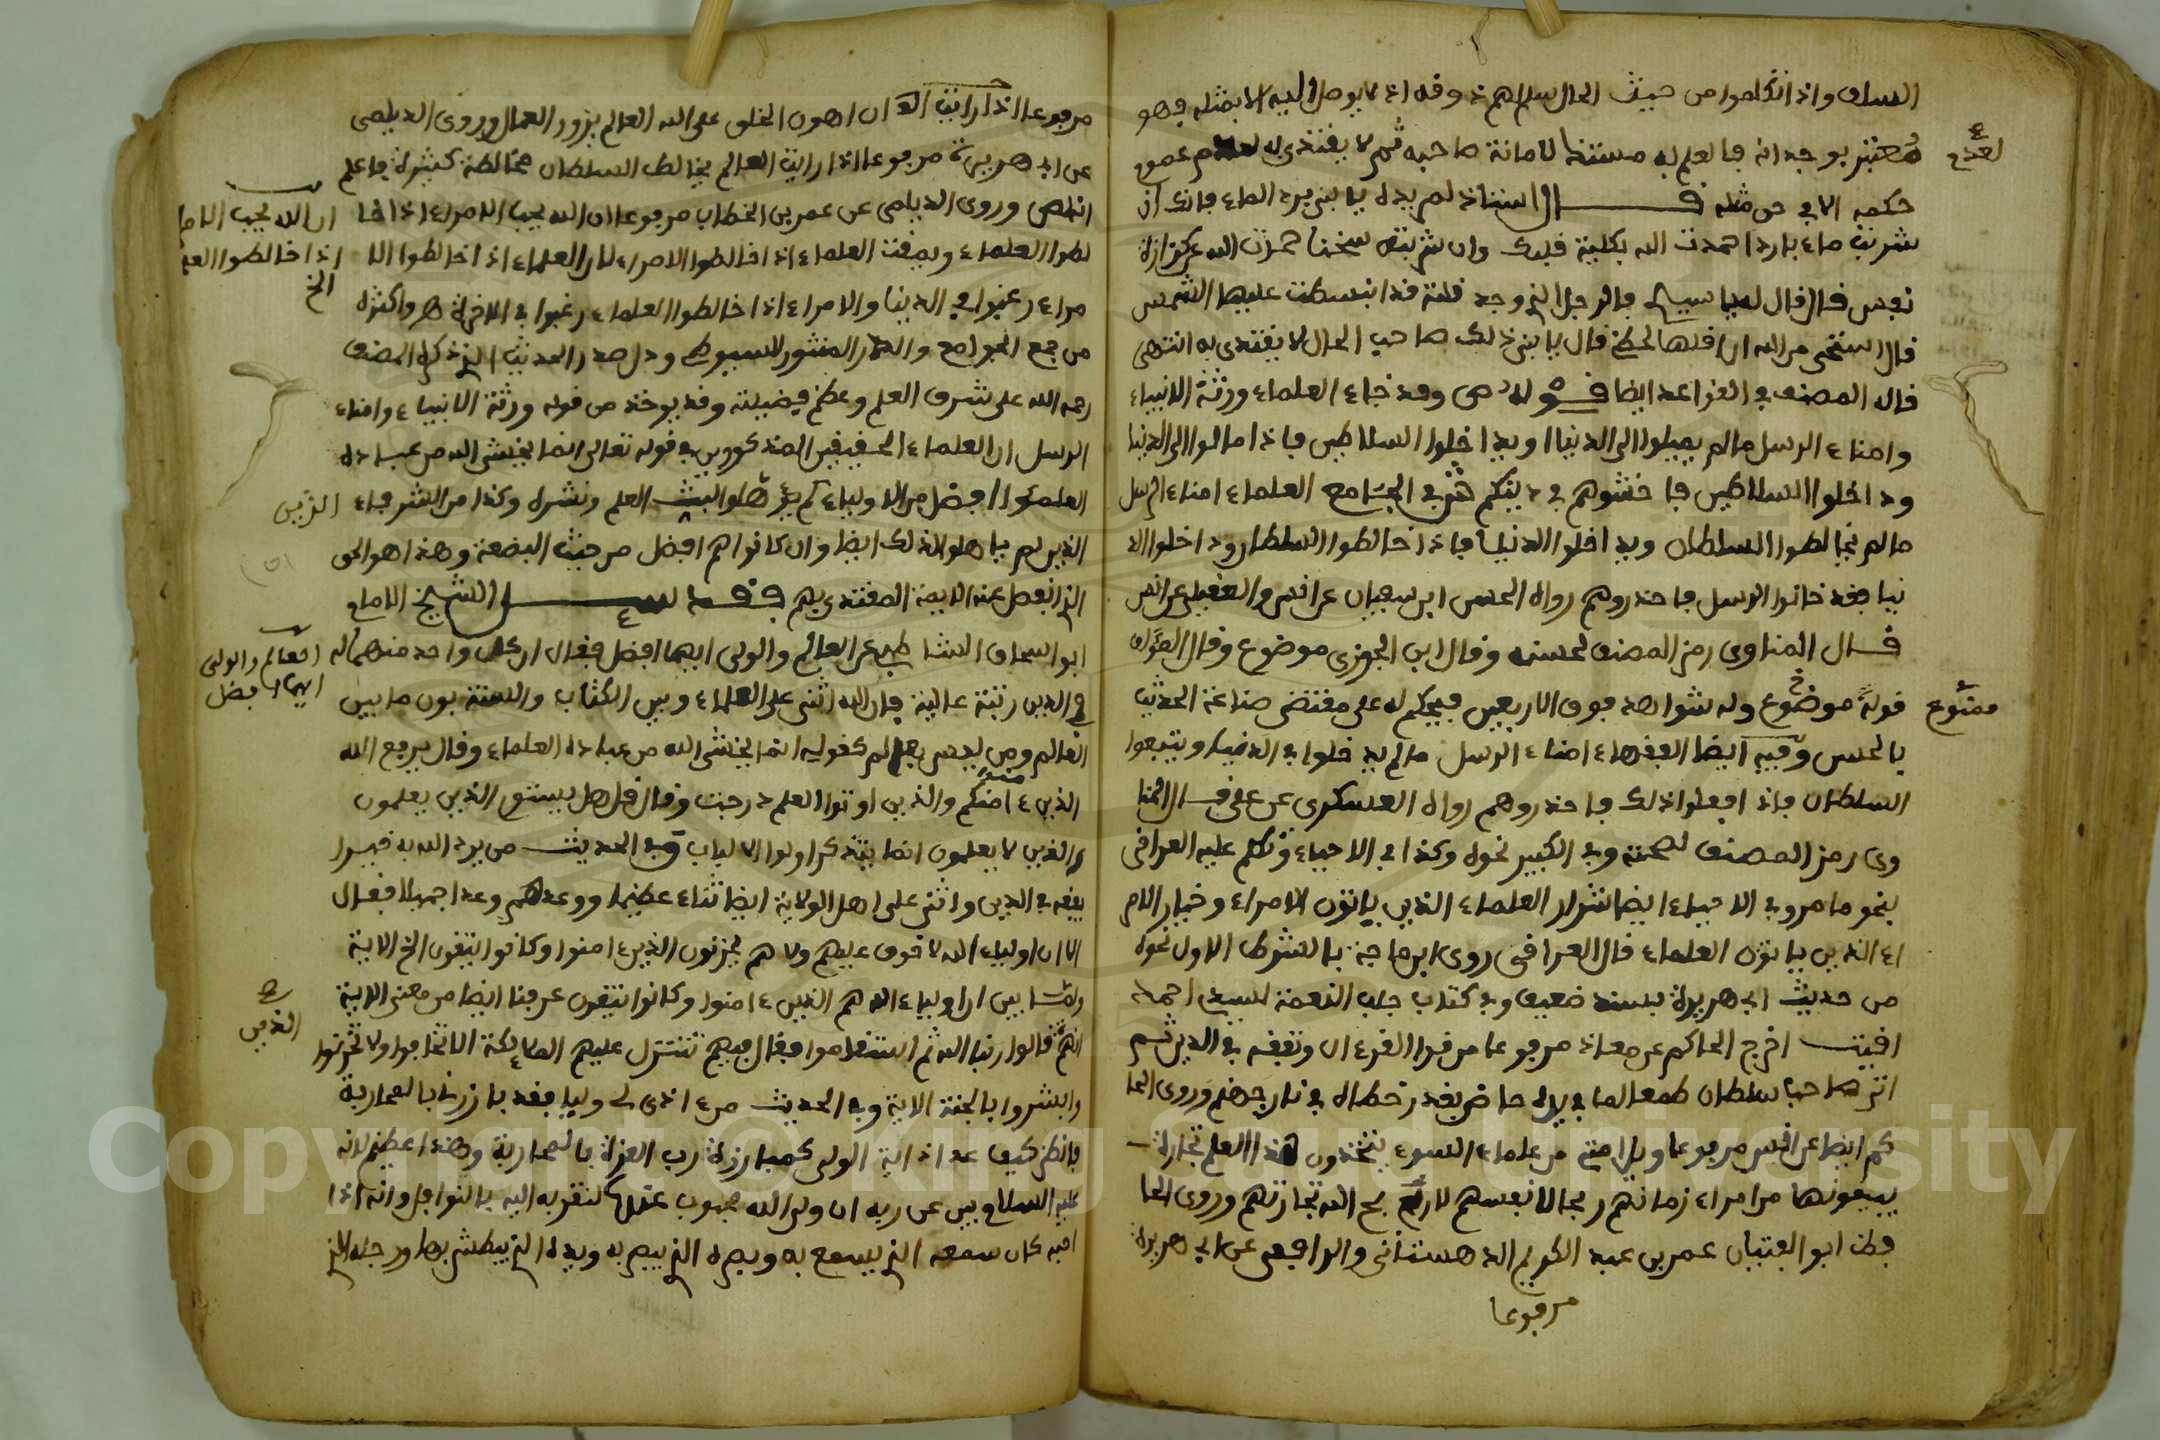 السلف واذا تكلموا من حيث الحال سلم لهم ذوقه اذ لا يوصل اليه الا بمثله فهو
معتبر بوجدانه فالعلم به مستند لامانة صاحبه ثم لا يقتدى به لعدم عموم
لعدم
حكمه الا في حق مثله قال استاذ لمريده يا بني برد الماء فانك ان
شربت ماء باردا حمدت الله بكلية قلبك وان شربته سخنا حمدت الله عن كزازة
نفس قال قال له يا سيدي فالرجل الذي وجد قلته قد انبسطت عليها الشمس
قال استحى من الله ان انقلها لحظي قال يا بني ذلك صاحب الحال لا يقتدى به انتهى
قاله المصنف في القواعد ايضا قوله ص وقد جاء العلماء ورثة الانبياء
وامناء الرسل ما لم يميلوا الى الدنيا ويداخلوا السلاطين فاذا مالوا الى الدنيا
وداخلوا السلاطين فاخشوهم في دينكم ش في الجامع العلماء امناء الرسل
ما لم يخالطوا السلطان ويداخلوا الدنيا فاذا خالطوا السلطان وداخلوا الد
نيا فقد خانوا الرسل فاحذروهم رواه الحسن ابن سفيان عن انس والعقيلي عن انس
قال المناوي رمز المصنف لحسنه وقال ابن الجوزي موضوع وقال المؤلف
قوله موضوع وله شواهد فوق الاربعين فيحكم له على مقتضى صناعة الحديث
ممنوع
بالحسن وفيه ايضا الفقهاء امناء الرسل ما لم يدخلوا في الدنيا ويتبعوا
السلطان فاذا فعلوا ذلك فاحذروهم رواه العسكري عن علي قال المنا
وي رمز المصنف لصحته وفي الكبير نحوه وكذا في الاحياء وتكلم عليه العراقي
بنحو ما مر وفي الاحياء ايضا شرار العلماء الذين ياتون الامراء وخيار الامر
اء الذين ياتون العلماء قال العراقي روى ابن ماجة بالشرط الاول نحوه
من حديث ابي هريرة بسند ضعيف وفي كتاب جلب النعمة للسيد احمد
اقيت اخرج الحاكم عن معاذ مرفوعا من قرا القرءان وتفقه في الدين ثم
اتى صاحب سلطان طمعا لما في يده خاض بقدر خطاه في نار جهنم وروى الحا
كم ايضا عن انس مرفوعا ويل لامتي من علماء السوء يتخذون هذا العلم تجارة
يبيعونها من امراء زمانهم ربحا لانفسهم لا اربح الله تجارتهم وروى الحا
فظ ابو الفتيان عمر بن عبد الكريم الدهستاني والرافعي عن ابي هريرة
مرفوعا
مرفوعا ان اهون الخلق على الله العالم يزور العمال وروى الديلمي
اذا رايت
عن ابي هريرة مرفوعا اذا رايت العالم يخالط السلطان مخالطة كثيرة فاعلم
انه لص وروى الديلمي عن عمر بن الخطاب مرفوعا ان الله يحب الامراء اذا خا
ان الله يحب الامر
لطوا العلماء ويمقت العلماء اذا خالطوا الامراء لان العلماء اذا خالطوا الا
اذا خالطوا العلـ
الخ
مراء رغبوا في الدنيا والامراء اذا خالطوا العلماء رغبوا في الاخرة هـ واكثره
من جمع الجوامع والدر المنثور للسيوطي ودل صدر الحديث الذي ذكره المصنف
رحمه الله على شرف العلم وعظم فضيلته وقد يوخذ من قوله ورثة الانبياء وامناء
الرسل ان العلماء الحقيقين المذكورين في قوله تعالى انما يخشى الله من عباده
العلماء افضل من الاولياء لم يؤهلوا لبث العلم ونشره وكذا من البشر فاء
الذين
الذين لم ياهلوا لذلك ايضا وان كانوا هم افضل من حيث البضعة وهذا هو الحق
الذي انفصل عنه الايمة المقتدى بهم فقد سئل الشيخ الامام
ابو اسحاق الشاطبي عن العالم والولي ايهما افضل فقال ان كل واحد منهما له
العالم والولي
ايهما افضل
في الدين رتبة عالية فان الله اثنى على العلماء وبين الكتاب والسنة بون ما بين
العالم ومن ليس بعالم كقوله انما يخشى الله من عباده العلماء وقال يرفع الله
الذين ءامنوا منكم والذين اوتوا العلم درجت وقال قل هل يستوي الذين يعلمون
والذين لا يعلمون انما يتذكر اولوا الالباب وفي الحديث من يرد الله به خيرا
يفقه في الدين واثنى على اهل الولاية ايضا ثناء عظيما ووعدهم وعدا جميلا فقال
الا ان اولياء الله لا خوف عليهم ولا هم يحزنون الذين ءامنوا وكانوا يتقون الخ الاية
ولما بين ان اولياء الله هم الذين ءامنوا وكانوا يتقون عرفنا ايضا من معنى الاية
الذين
انهم قالوا ربنا الله ثم استقاموا فقال فيهم تتنزل عليهم الملئكة الا تخافوا ولا تحزنوا
وابشروا بالجنة الاية وفي الحديث من ءاذى لي وليا فقد بارزني بالمحاربة
فانظر كيف عد اذاية الولي كمبارزة رب العزة بالمحاربة وهذا عظيم لانه
عليه السلام بين عن ربه ان ولي الله محبوب عنده لتقربه اليه بالنوافل وانه اذا
احبه كان سمعه الذي يسمع به وبصره الذي يبصر به ويده التي يبطش بها ورجله التي
Copyright © King Saud University